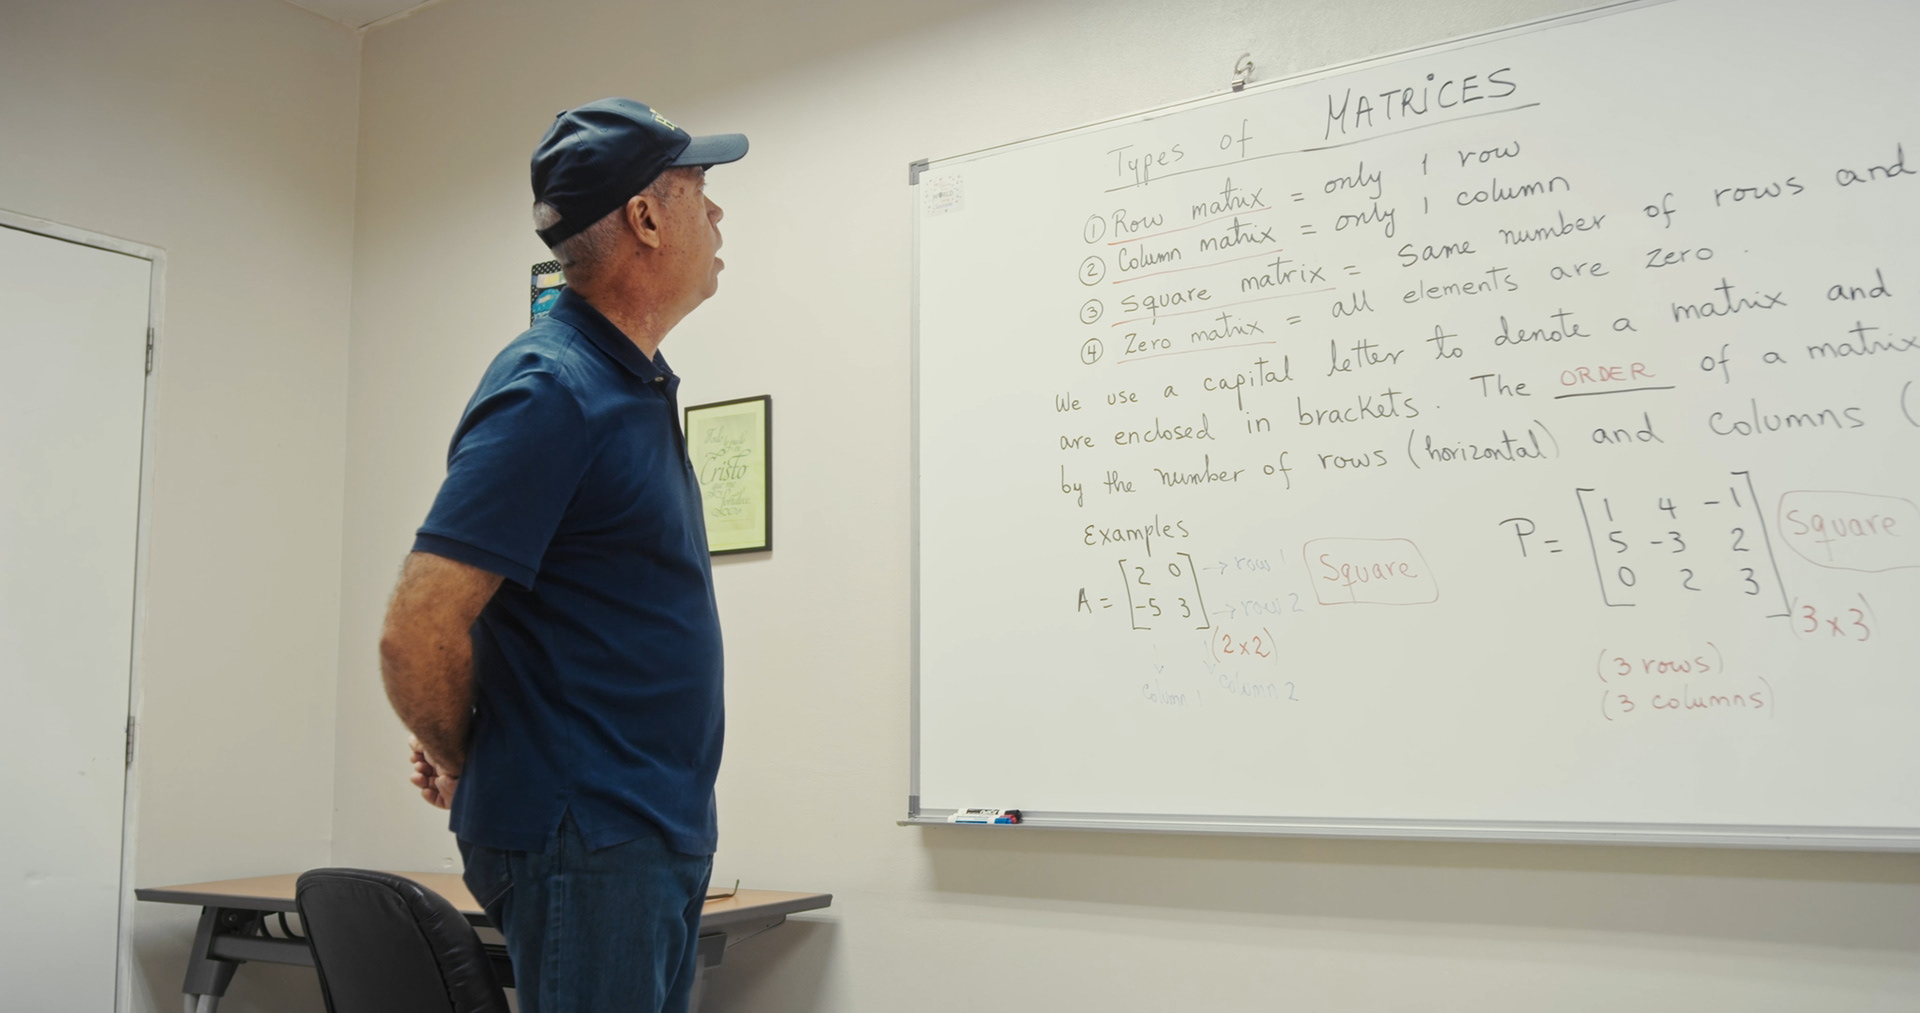 Types of MATRICES
① Row matrix = only 1 row
② Column matrix = only 1 column
③ Square matrix = Same number of rows and
④ Zero matrix = all elements are zero.
We use a capital letter to denote a matrix and
are enclosed in brackets. The ORDER of a matrix
by the number of rows (horizontal) and columns (
Examples
A = [2 0 → row 1
-5 3] → row 2
(2x2)
column 1 column 2
Square
P = [1 4 -1
5 -3 2
0 2 3]
(3x3)
Square
(3 rows)
(3 columns)
Cristo